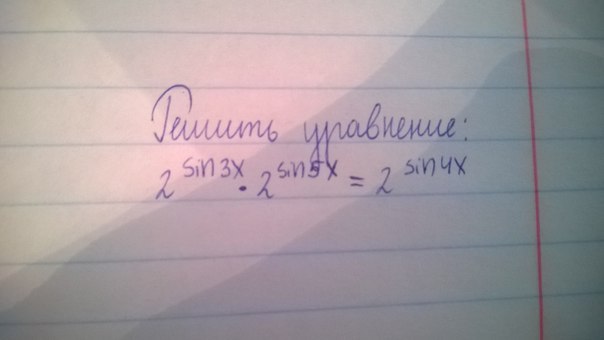 Решить уравнение:
2^sin3x · 2^sin5x = 2^sin4x